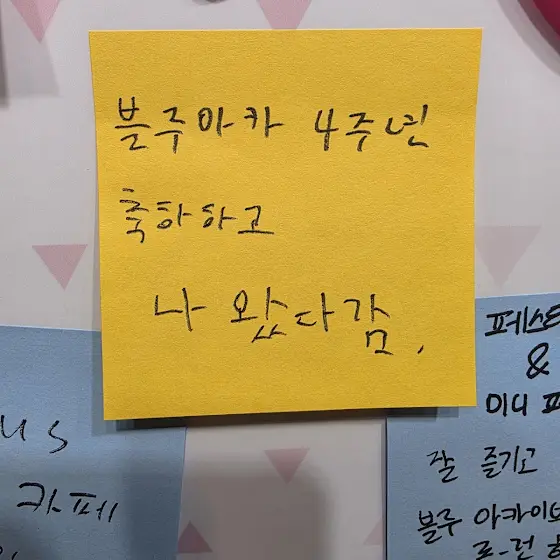 블루아카 4주년
축하하고
나 왔다감.
us
카페
페스
&
미니 페
잘 즐기고
블루 아카이브
로-런